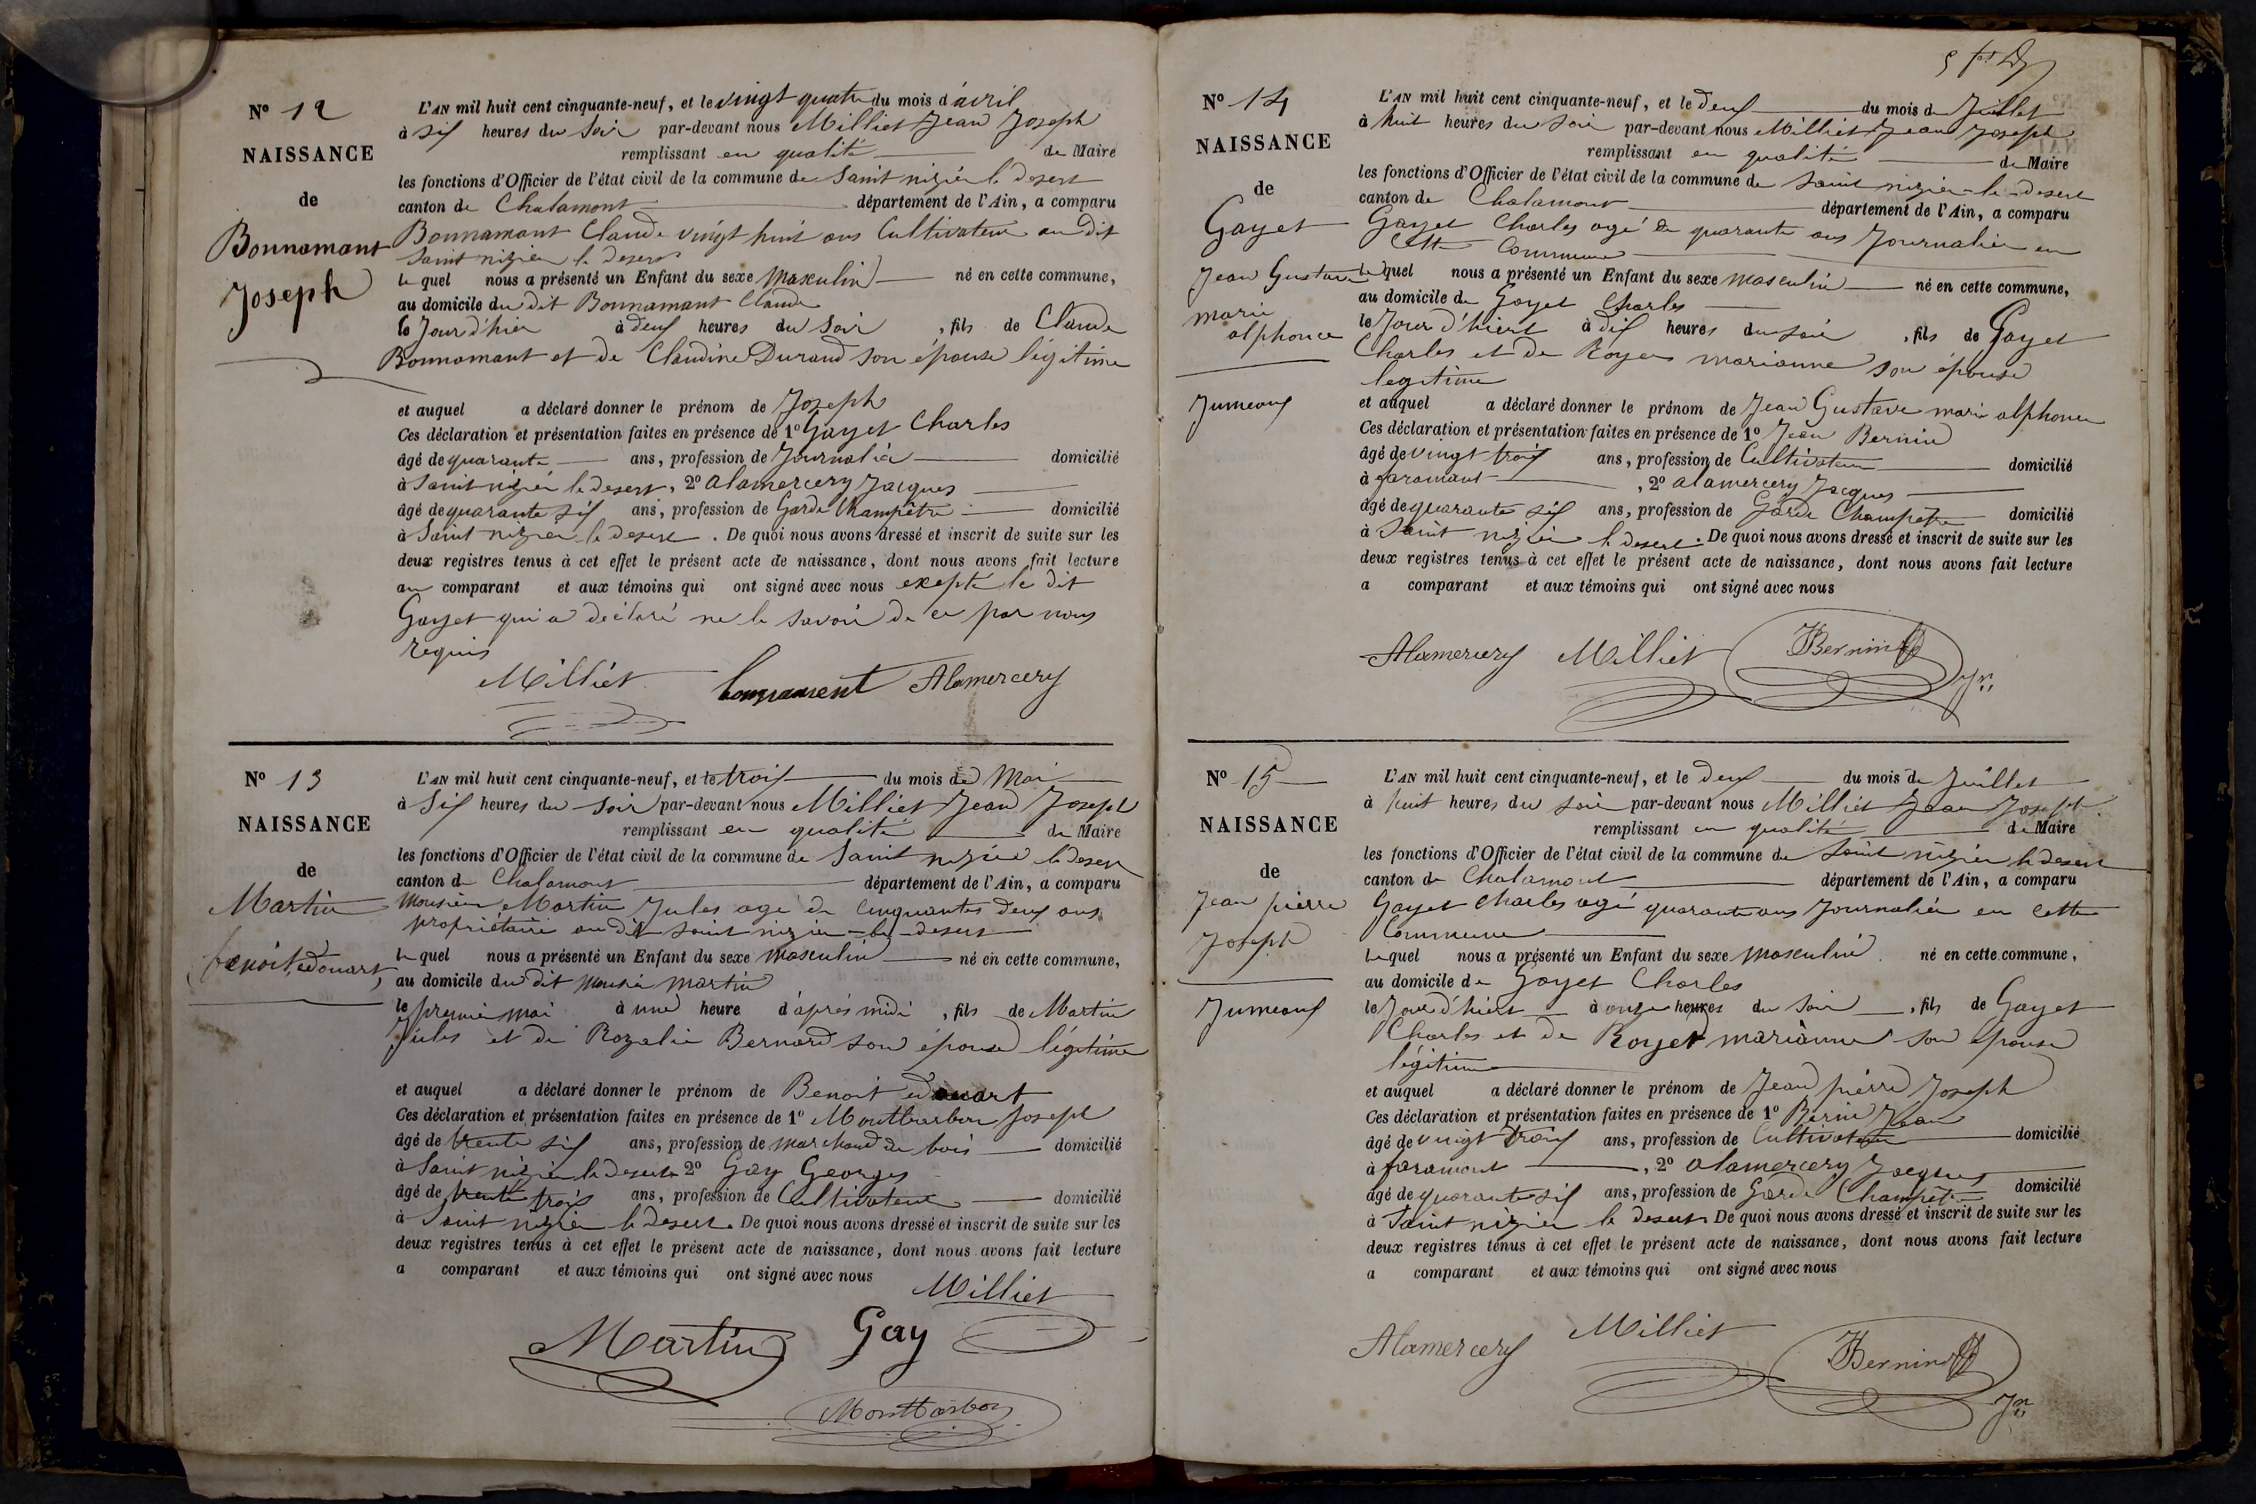 Nº 12
NAISSANCE
de
Bonnamant
Joseph
L'AN mil huit cent cinquante-neuf, et le vingt quatre du mois d'avril
à six heures du Soir par-devant nous Milliet Jean Joseph
remplissant en qualité de Maire
les fonctions d'Officier de l'état civil de la commune de Saint nizier le desert
canton de Chalamont département de l'Ain, a comparu
Bonnamant Claude vingt huit ans Cultivateur au dit
Saint nizier le desert
le quel nous a présenté un Enfant du sexe Masculin né en cette commune,
au domicile du dit Bonnamant Claude
le Jour d'hier à deux heures du Soir, fils de Claude
Bonnamant et de Claudine Durand son épouse légitime
et auquel a déclaré donner le prénom de Joseph
Ces déclaration et présentation faites en présence de 1º Gayet Charles
âgé de quarante ans, profession de Journalier domicilié
à Saint nizier le desert, 2º Alamercery Jacques
âgé de quarante six ans, profession de Garde Champêtre domicilié
à Saint nizier le desert. De quoi nous avons dressé et inscrit de suite sur les
deux registres tenus à cet effet le présent acte de naissance, dont nous avons fait lecture
au comparant et aux témoins qui ont signé avec nous exepté le dit
Gayet qui a déclaré ne le savoir de ce par nous
requis
Milliet Bonnament Alamercery
Nº 13
NAISSANCE
de
Martin
benoit, edouart
L'AN mil huit cent cinquante-neuf, et le trois du mois de Mai
à Six heures du soir par-devant nous Milliet Jean Joseph
remplissant en qualité de Maire
les fonctions d'Officier de l'état civil de la commune de Saint nizier le desert
canton de Chalamont département de l'Ain, a comparu
Monsieur Martin Jules agé de cinquantes deux ans
propriétaire au dit saint nizier-le-desert
le quel nous a présenté un Enfant du sexe masculin né en cette commune,
au domicile du dit Monsieur martin
le premier mai à une heure d'après midi, fils de Martin
Jules et de Rozalie Bernard son épouse légitime
et auquel a déclaré donner le prénom de Benoit edouart
Ces déclaration et présentation faites en présence de 1º Montbarbon Joseph
âgé de trente six ans, profession de marchand de bois domicilié
à Saint nizier le desert 2º Gay Georges
âgé de trente trois ans, profession de Cultivateur domicilié
à Saint nizier le desert. De quoi nous avons dressé et inscrit de suite sur les
deux registres tenus à cet effet le présent acte de naissance, dont nous avons fait lecture
a comparant et aux témoins qui ont signé avec nous
Milliet
Martin Gay
Montbarbon
Nº 14
NAISSANCE
de
Gayet
Jean Gustave
marie
alphonce
Jumeaux
L'AN mil huit cent cinquante-neuf, et le deux du mois de Juillet
à huit heures du soir par-devant nous Milliet Jean Joseph
remplissant en qualité de Maire
les fonctions d'Officier de l'état civil de la commune de Saint nizier-le-desert
canton de Chalamont département de l'Ain, a comparu
Gayet Charles agé de quarante ans Journalier en
Cette Commune
le quel nous a présenté un Enfant du sexe masculin né en cette commune,
au domicile de Gayet Charles
le Jour d'hiert à dix heures du soir, fils de Gayet
Charles et de Royer marianne son épouse
legitime
et auquel a déclaré donner le prénom de Jean Gustave marie alphonce
Ces déclaration et présentation faites en présence de 1º Jean Bernin
âgé de vingt trois ans, profession de Cultivateur domicilié
à faramant, 2º alamercery Jacques
âgé de quarante six ans, profession de Garde Champêtre domicilié
à Saint nizier le desert. De quoi nous avons dressé et inscrit de suite sur les
deux registres tenus à cet effet le présent acte de naissance, dont nous avons fait lecture
a comparant et aux témoins qui ont signé avec nous
Alamercery Milliet Bernin Jn
Nº 15
NAISSANCE
de
Jean pierre
Joseph
Jumeaux
L'AN mil huit cent cinquante-neuf, et le deux du mois de Juillet
à huit heures du soir par-devant nous Milliet Jean Joseph
remplissant en qualité de Maire
les fonctions d'Officier de l'état civil de la commune de Saint nizier le desert
canton de Chalamont département de l'Ain, a comparu
Gayet Charles agé quarante ans Journalier en cette
Commune
le quel nous a présenté un Enfant du sexe masculin né en cette commune,
au domicile de Gayet Charles
le Jour d'hiert à onze heures du Soir, fils de Gayet
Charles et de Royer marianne son épouse
légitime
et auquel a déclaré donner le prénom de Jean pierre Joseph
Ces déclaration et présentation faites en présence de 1º Bernin Jean
âgé de vingt trois ans, profession de Cultivateur domicilié
à faramant, 2º alamercery Jacques
âgé de quarante six ans, profession de Garde Champêtre domicilié
à Saint nizier le desert De quoi nous avons dressé et inscrit de suite sur les
deux registres tenus à cet effet le présent acte de naissance, dont nous avons fait lecture
a comparant et aux témoins qui ont signé avec nous
Alamercery Milliet Bernin Jn